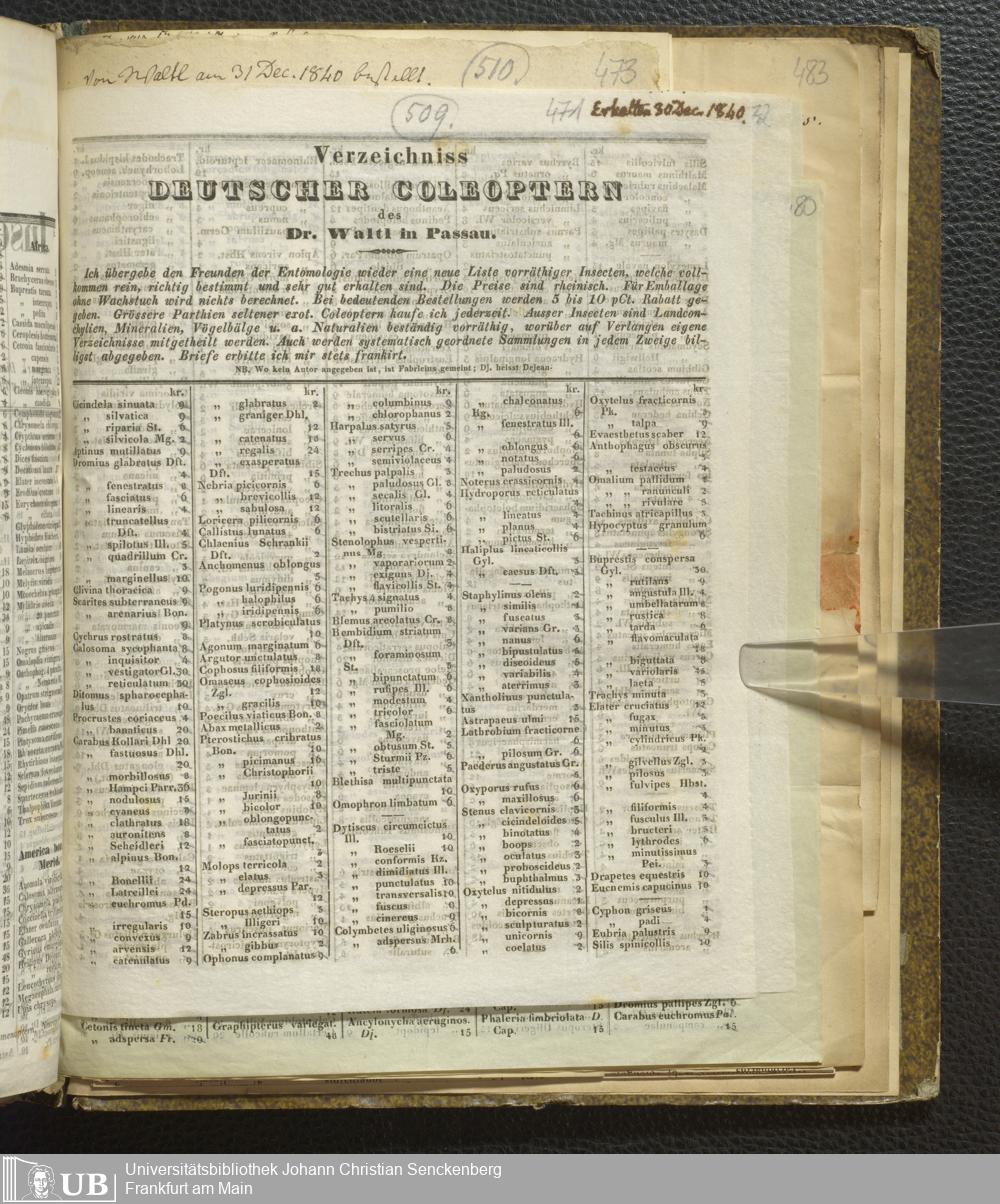 Von Waltl am 31 Dec. 1840 bestellt.
(510)
473
483
(509.
471
Erhalten 30 Dec. 1840.
Verzeichniss
DEUTSCHER COLEOPTERN
des
Dr. Waltl in Passau.
Ich übergebe den Freunden der Entomologie wieder eine neue Liste vorräthiger Insecten, welche voll-
kommen rein, richtig bestimmt und sehr gut erhalten sind. Die Preise sind rheinisch. Für Emballage
ohne Wachstuch wird nichts berechnet. Bei bedeutenden Bestellungen werden 5 bis 10 pCt. Rabatt ge-
geben. Grössere Parthien seltener exot. Coleoptern kaufe ich jederzeit. Ausser Insecten sind Landcon-
chylien, Mineralien, Vögelbälge u. a. Naturalien beständig vorräthig, worüber auf Verlangen eigene
Verzeichnisse mitgetheilt werden. Auch werden systematisch geordnete Sammlungen in jedem Zweige bil-
ligst abgegeben. Briefe erbitte ich mir stets frankirt.
NB. Wo kein Autor angegeben ist, ist Fabricius gemeint; Dj. heisst Dejean.
kr.
Cicindela sinuata 9
„ silvatica 9
„ riparia St. 6
„ silvicola Mg. 2
Ptinus mutillatus 9
Dromius glabratus Dft.
4
„ fenestratus 8
„ fasciatus 6
„ linearis 4
„ truncatellus
Dft. 4
„ spilotus Ill. 5
„ quadrillum Cr.
3
„ marginellus 10
Clivina thoracica 9
Scarites subterraneus 9
„ arenarius Bon.
9
Cychrus rostratus 8
Calosoma sycophanta 8
„ inquisitor 4
„ vestigator Gl. 30
„ reticulatum 30
Ditomus sphaerocepha-
lus 10
Procrustes coriaceus 4
„ banaticus 20
Carabus Kollari Dhl 20
„ fastuosus Dhl.
20
„ morbillosus 8
„ Hampei Parr. 36
„ nodulosus 15
„ cyaneus 8
„ clathratus 18
„ auronitens 8
„ Scheidleri 12
„ alpinus Bon.
12
„ Bonellii 24
„ Latreillei 24
„ euchromus Pd.
15
„ irregularis 10
„ convexus 9
„ arvensis 12
„ catenulatus 9
kr.
„ glabratus 2
„ graniger Dhl,
12
„ catenatus 18
„ regalis 24
„ exasperatus
Dft. 15
Nebria picicornis 6
„ brevicollis 12
„ sabulosa 12
Loricera pilicornis 6
Callistus lunatus 6
Chlaenius Schrankii
Dft. 2
Anchomenus oblongus
5
Pogonus luridipennis 6
„ halophilus 6
„ iridipennis 6
Platynus scrobiculatus
10
Agonum marginatum 6
Argutor unctulatus 8
Cophosus filiformis 18
Omaseus cophosioides
Zgl. 12
„ gracilis 10
Poecilus viaticus Bon. 8
Abax metallicus 2
Pterostichus cribratus
Bon. 10
„ picimanus 16
„ Christophorii
10
„ Jurinii 8
„ bicolor 10
„ oblongopunc-
tatus 2
„ fasciatopunct.
3
Molops terricola 2
„ elatus 3
„ depressus Par.
12
Steropus aethiops 5
„ Illigeri 10
Zabrus incrassatus 10
„ gibbus 2
Ophonus complanatus 9
kr.
„ columbinus 9
„ chlorophanus 2
Harpalus satyrus 5
„ servus 6
„ serripes Cr. 4
„ semiviolaceus 4
Trechus palpalis 3
„ paludosus Gl. 8
„ secalis Gl. 4
„ litoralis 6
„ scutellaris 6
„ bistriatus Si. 6
Stenolophus vesperti-
nus Mg. 8
„ vaporariorum 2
„ exiguus Dj. 4
„ flavicollis St. 4
Tachys 4 signatus 4
„ pumilio 8
Blemus areolatus Cr. 8
Bembidium striatum
Dft. 3
„ foraminosum
St. 5
„ bipunctatum 6
„ rufipes Ill. 6
„ modestum 4
„ tricolor 6
„ fasciolatum
Mg. 2
„ obtusum St. 5
„ Sturmii Pz. 6
„ triste 5
Blethisa multipunctata
10
Omophron limbatum 6
Dytiscus circumcictus
Ill. 10
„ Roeselii 10
„ conformis Hz.
„ dimidiatus Ill.
„ punctulatus 10
„ transversalis 10
„ fuscus 9
„ cinereus 9
Colymbetes uliginosus 6
„ adspersus Mrh.
6
kr.
„ chalconatus
Rg. 6
„ fenestratus Ill.
6
„ oblongus 6
„ notatus 6
„ paludosus 2
Noterus crassicornis 4
Hydroporus reticulatus
4
„ lineatus 4
„ planus 4
„ pictus St. 6
Haliplus lineaticollis
Gyl. 3
„ caesus Dft. 3
Staphylinus olens 2
„ similis 4
„ fuscatus 3
„ varians Gr. 3
„ nanus 6
„ bipustulatus 4
„ discoideus 5
„ variabilis 4
„ aterrimus 3
Xantholinus punctula-
tus 3
Astrapaeus ulmi 15
Lathrobium fracticorne
6
„ pilosum Gr. 6
Paederus angustatus Gr.
5
Oxyporus rufus 6
„ maxillosus 6
Stenus clavicornis 3
„ cicindeloides 5
„ binotatus 4
„ boops 2
„ oculatus 3
„ proboscideus 2
„ buphthalmus 3
Oxytelus nitidulus 2
„ depressus 1
„ bicornis 8
„ sculpturatus 2
„ unicornis 9
„ coelatus 2
kr.
Oxytelus fracticornis
Pk. 2
„ talpa 9
Evaesthetus scaber 12
Anthophagus obscurus
4
„ testaceus 4
Omalium pallidum 8
„ „ ranunculi 2
„ „ rivulare 5
Tachinus atricapillus 3
Hypocyptus granulum
6
Buprestis conspersa
Gyl. 30
„ rutilans 9
„ angustula Ill. 4
„ umbellatarum 8
„ rustica 8
„ tarda 6
„ flavomaculata
18
„ biguttata 8
„ variolaris 4
„ laeta 5
Trachys minuta 3
Elater cruciatus 12
„ fugax 5
„ minutus 3
„ cylindricus Pk.
2
„ gilvellus Zgl. 3
„ pilosus 3
„ fulvipes Hbst.
4
„ filiformis 4
„ fusculus Ill. 3
„ bructeri 5
„ lythrodes 6
„ minutissimus
Pei. 3
Drapetes equestris 10
Eucnemis capucinus 10
Cyphon griseus 4
„ padi 4
Eubria palustris 9
Silis spinicollis 10
80
Cetonia tincta Gm. 18
„ adspersa Fr. 20
Graphipterus variegat.
48
Ancylonycha aeruginos.
Dj. 15
Cap. 15
Phaleria limbriolata D.
Cap. 15
Dromius pallipes Zgl. 6
Carabus euchromus Pal.
15
Afrika.
America
Merid.
UB
Universitätsbibliothek Johann Christian Senckenberg
Frankfurt am Main